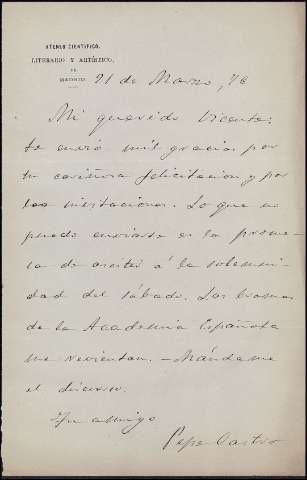 ATENEO CIENTÍFICO,
LITERARIO Y ARTÍSTICO,
DE
MADRID
21 de Marzo, 76
Mi querido Vicente:
te envío mil gracias por
tu cariñosa felicitacion y por
las invitaciones. Lo que no
puedo enviarte es la prome-
sa de asistir á la solemni-
dad del sábado. Las bromas
de la Academia Española
me revientan. - Mándame
el discurso.
Tu amigo
Pepe Castro